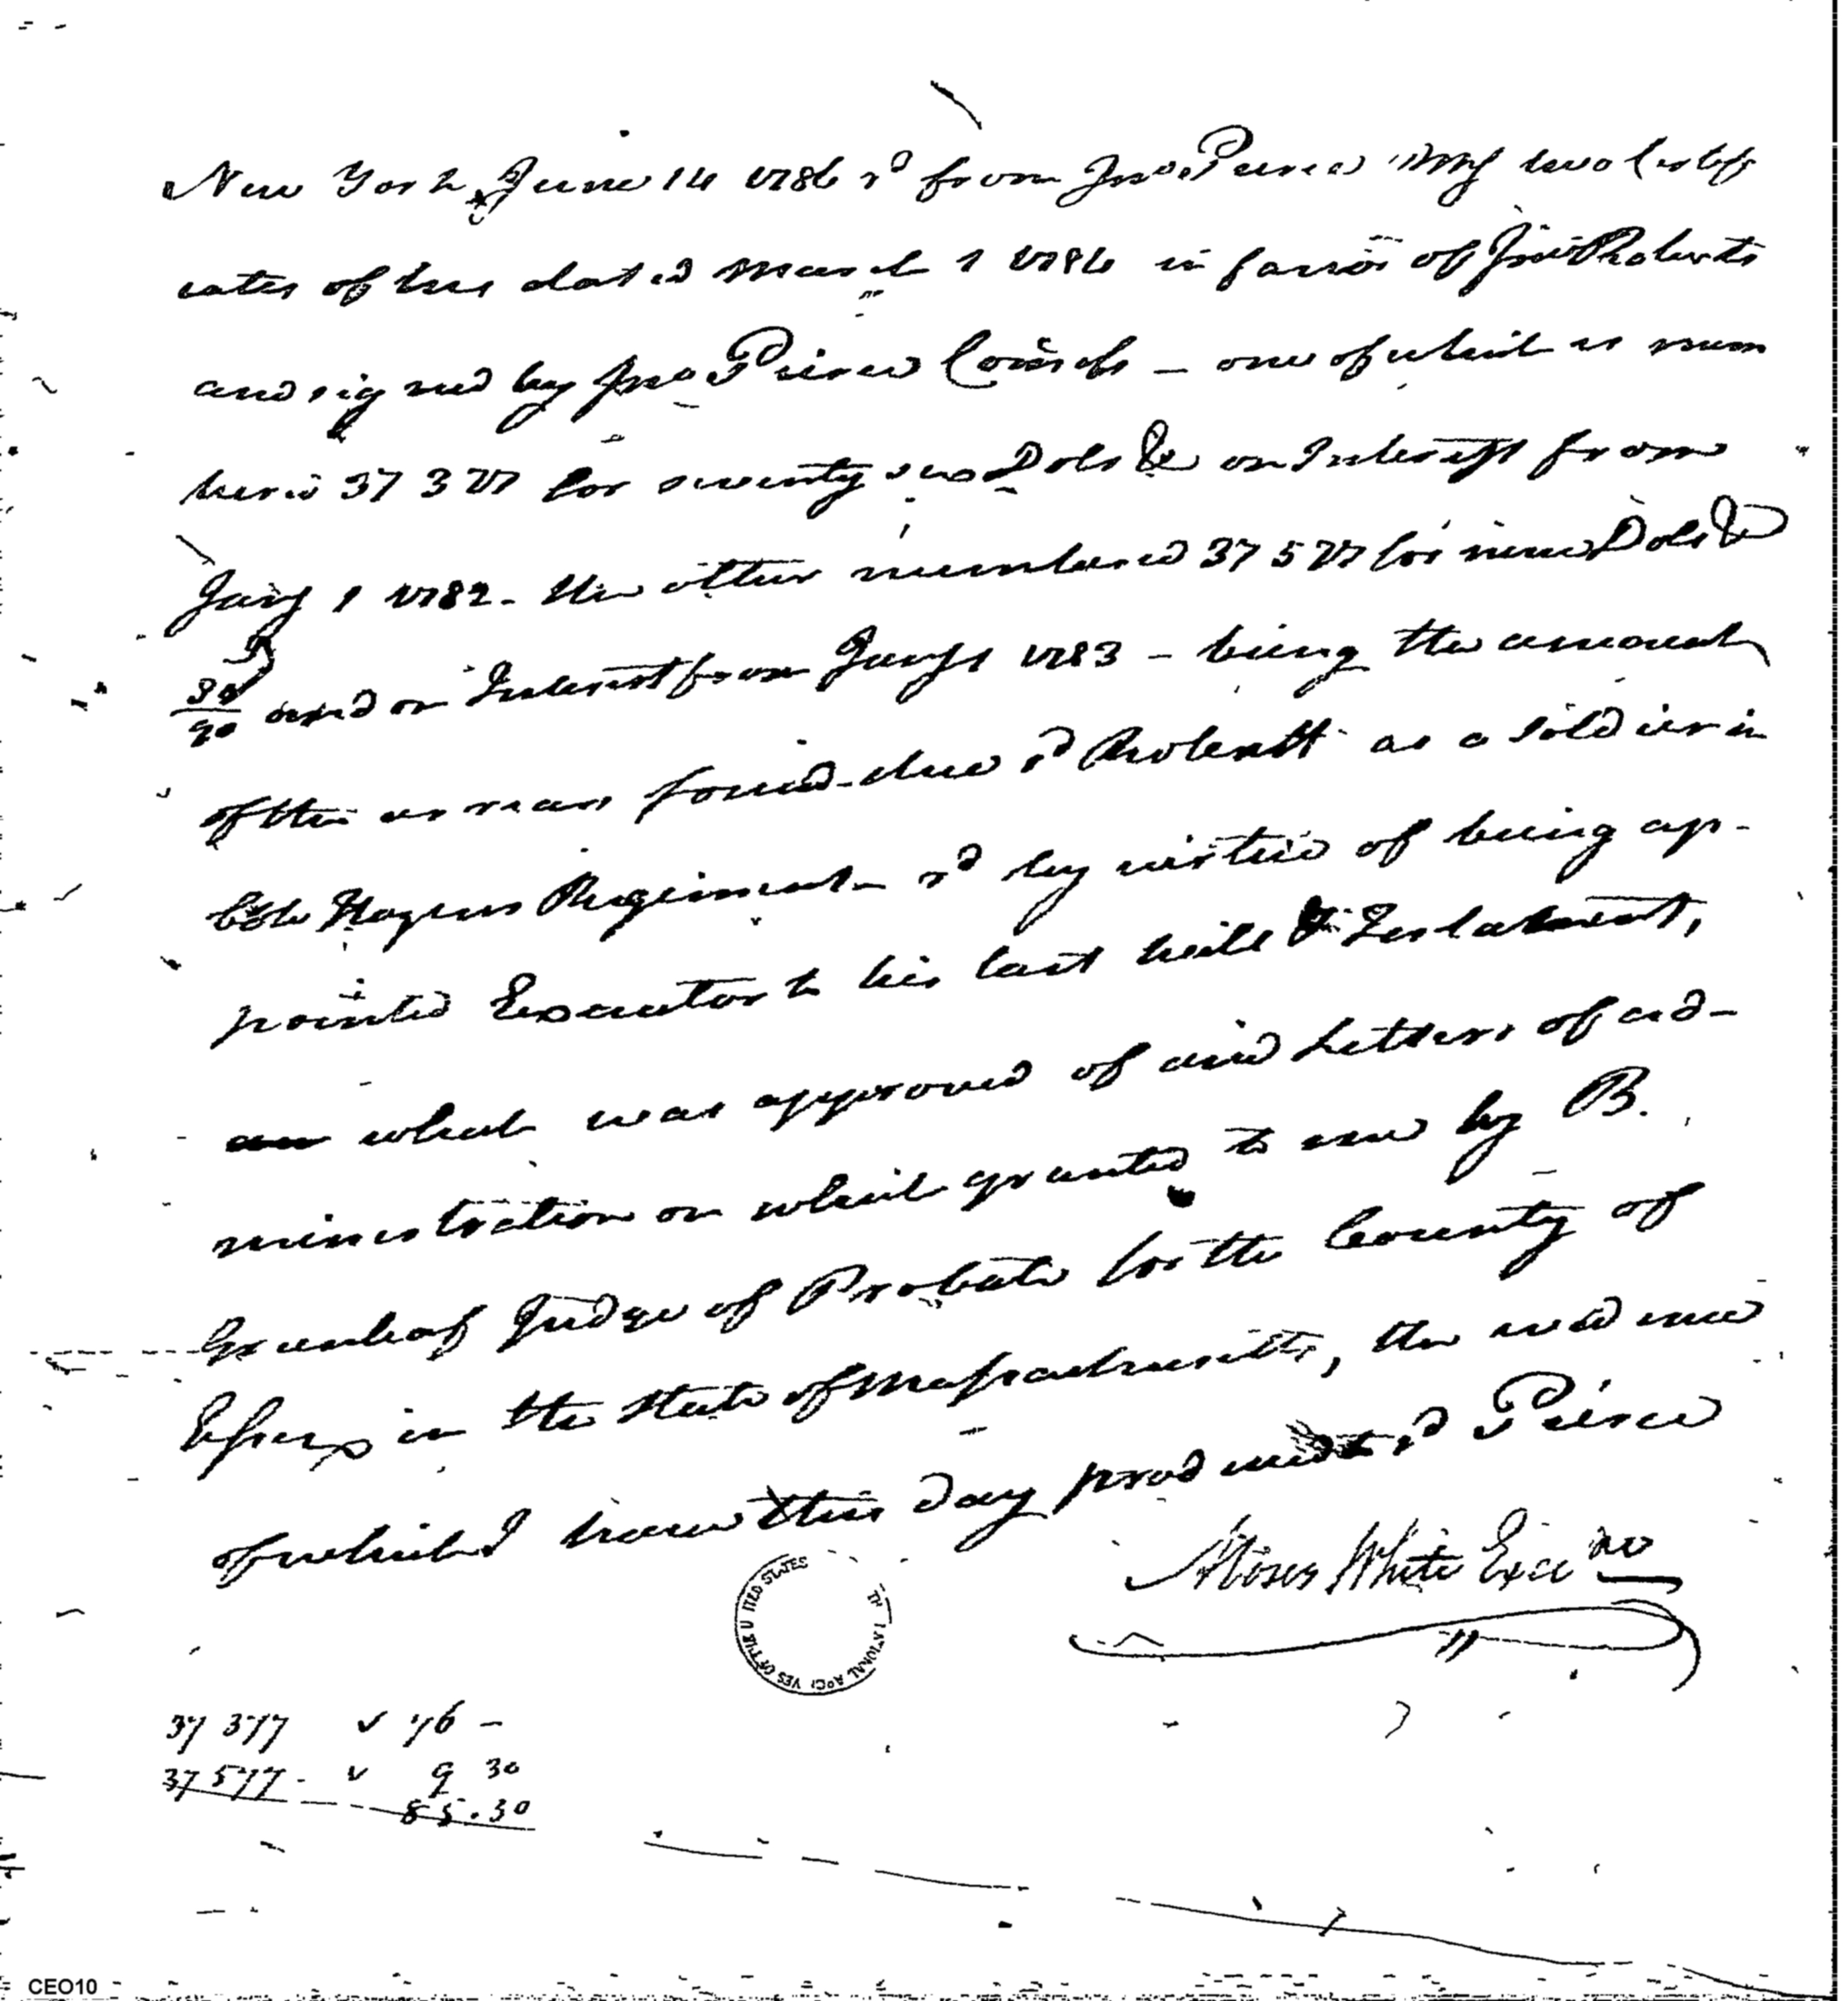 New York June 14 1786 rd from Jno Pierce Esq two Certifi
cates of his dated March 1 1786 in favor of Jno Roberts
and signed by Jno Pierce Comr — one of which is num
bered 37 377 for seventy six Dols & on Interest from
Jany 1 1782 - the other numbered 37 577 for nine Dols &
30/90 and on Interest from Jany 1 1783 - being the amount
of the arrears found due sd Roberts as a soldier in
Colo Hazens Regiment - rd by virtue of being ap-
pointed Executor to his last will & Testament,
which was approved of and Letters of ad-
ministration on which granted to me by B.
Greenleaf Judge of Probate for the County of
Essex in the State of Massachusetts, the evidence
of which I have this day produced sd Pierce
Moses White Execr
37 377 v 76 -
37 577 - v 9 30
85.30
NATIONAL ARCHIVES OF THE UNITED STATES
CEO10